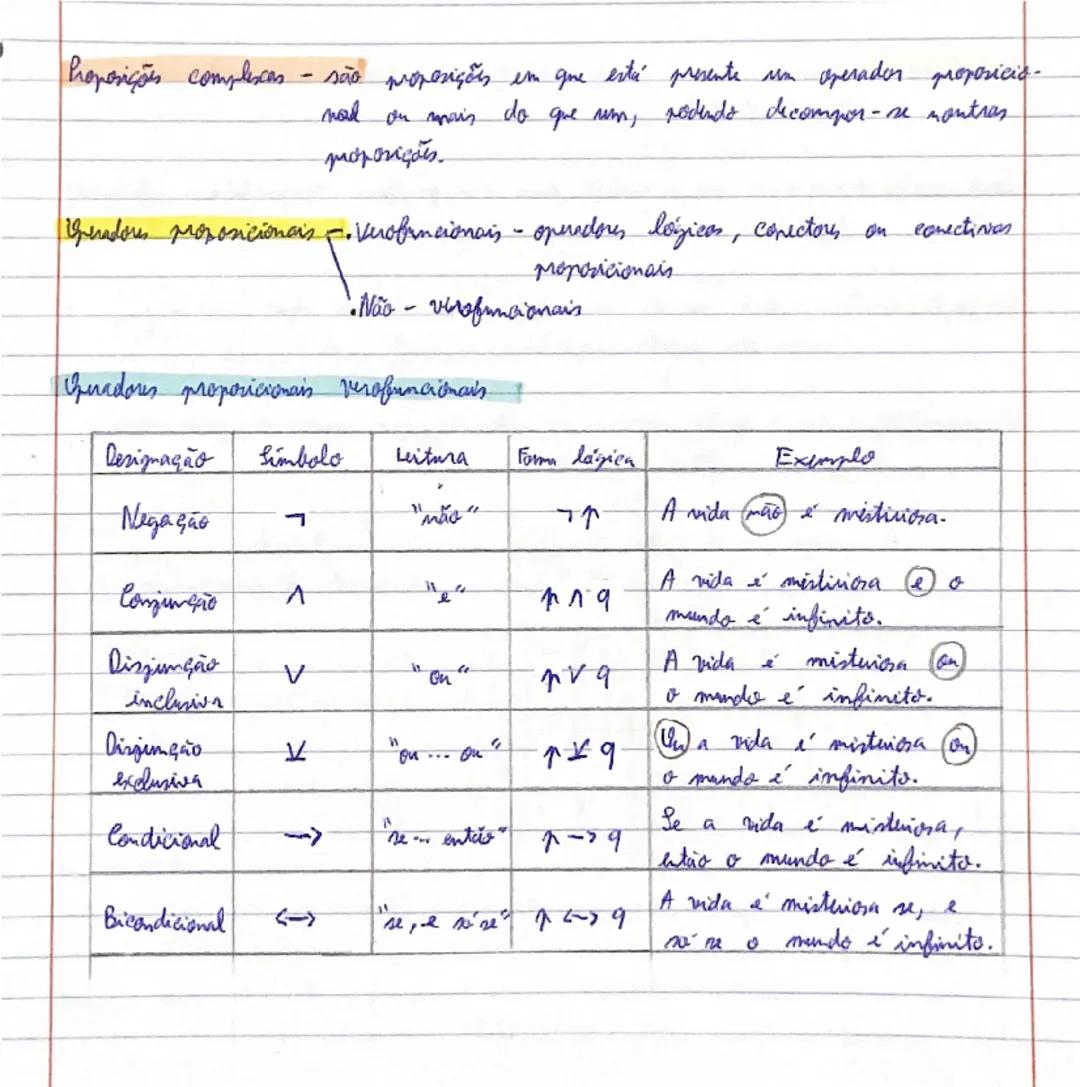 Proposições complexas - são proposições em que está presente um operador proposicio-
nal ou mais do que um, podendo decompor-se noutras
proposições.
Operadores proposicionais - . Verofuncionais - operadores lógicos, conectores ou conectivas
proposicionais
. Não - verofuncionais
Operadores proposicionais verofuncionais
Designação Símbolo Leitura Forma lógica Exemplo
Negação ¬ "não" ¬p A vida não é misteriosa.
Conjunção ∧ "e" p ∧ q A vida é misteriosa e o
mundo é infinito.
Disjunção inclusiva ∨ "ou" p ∨ q A vida é misteriosa ou
o mundo é infinito.
Disjunção exclusiva ⊻ "ou ... ou" p ⊻ q Ou a vida é misteriosa ou
o mundo é infinito.
Condicional –> "se ... então" p –> q Se a vida é misteriosa,
então o mundo é infinito.
Bicondicional <–> "se, e só se" p <–> q A vida é misteriosa se, e
só se o mundo é infinito.